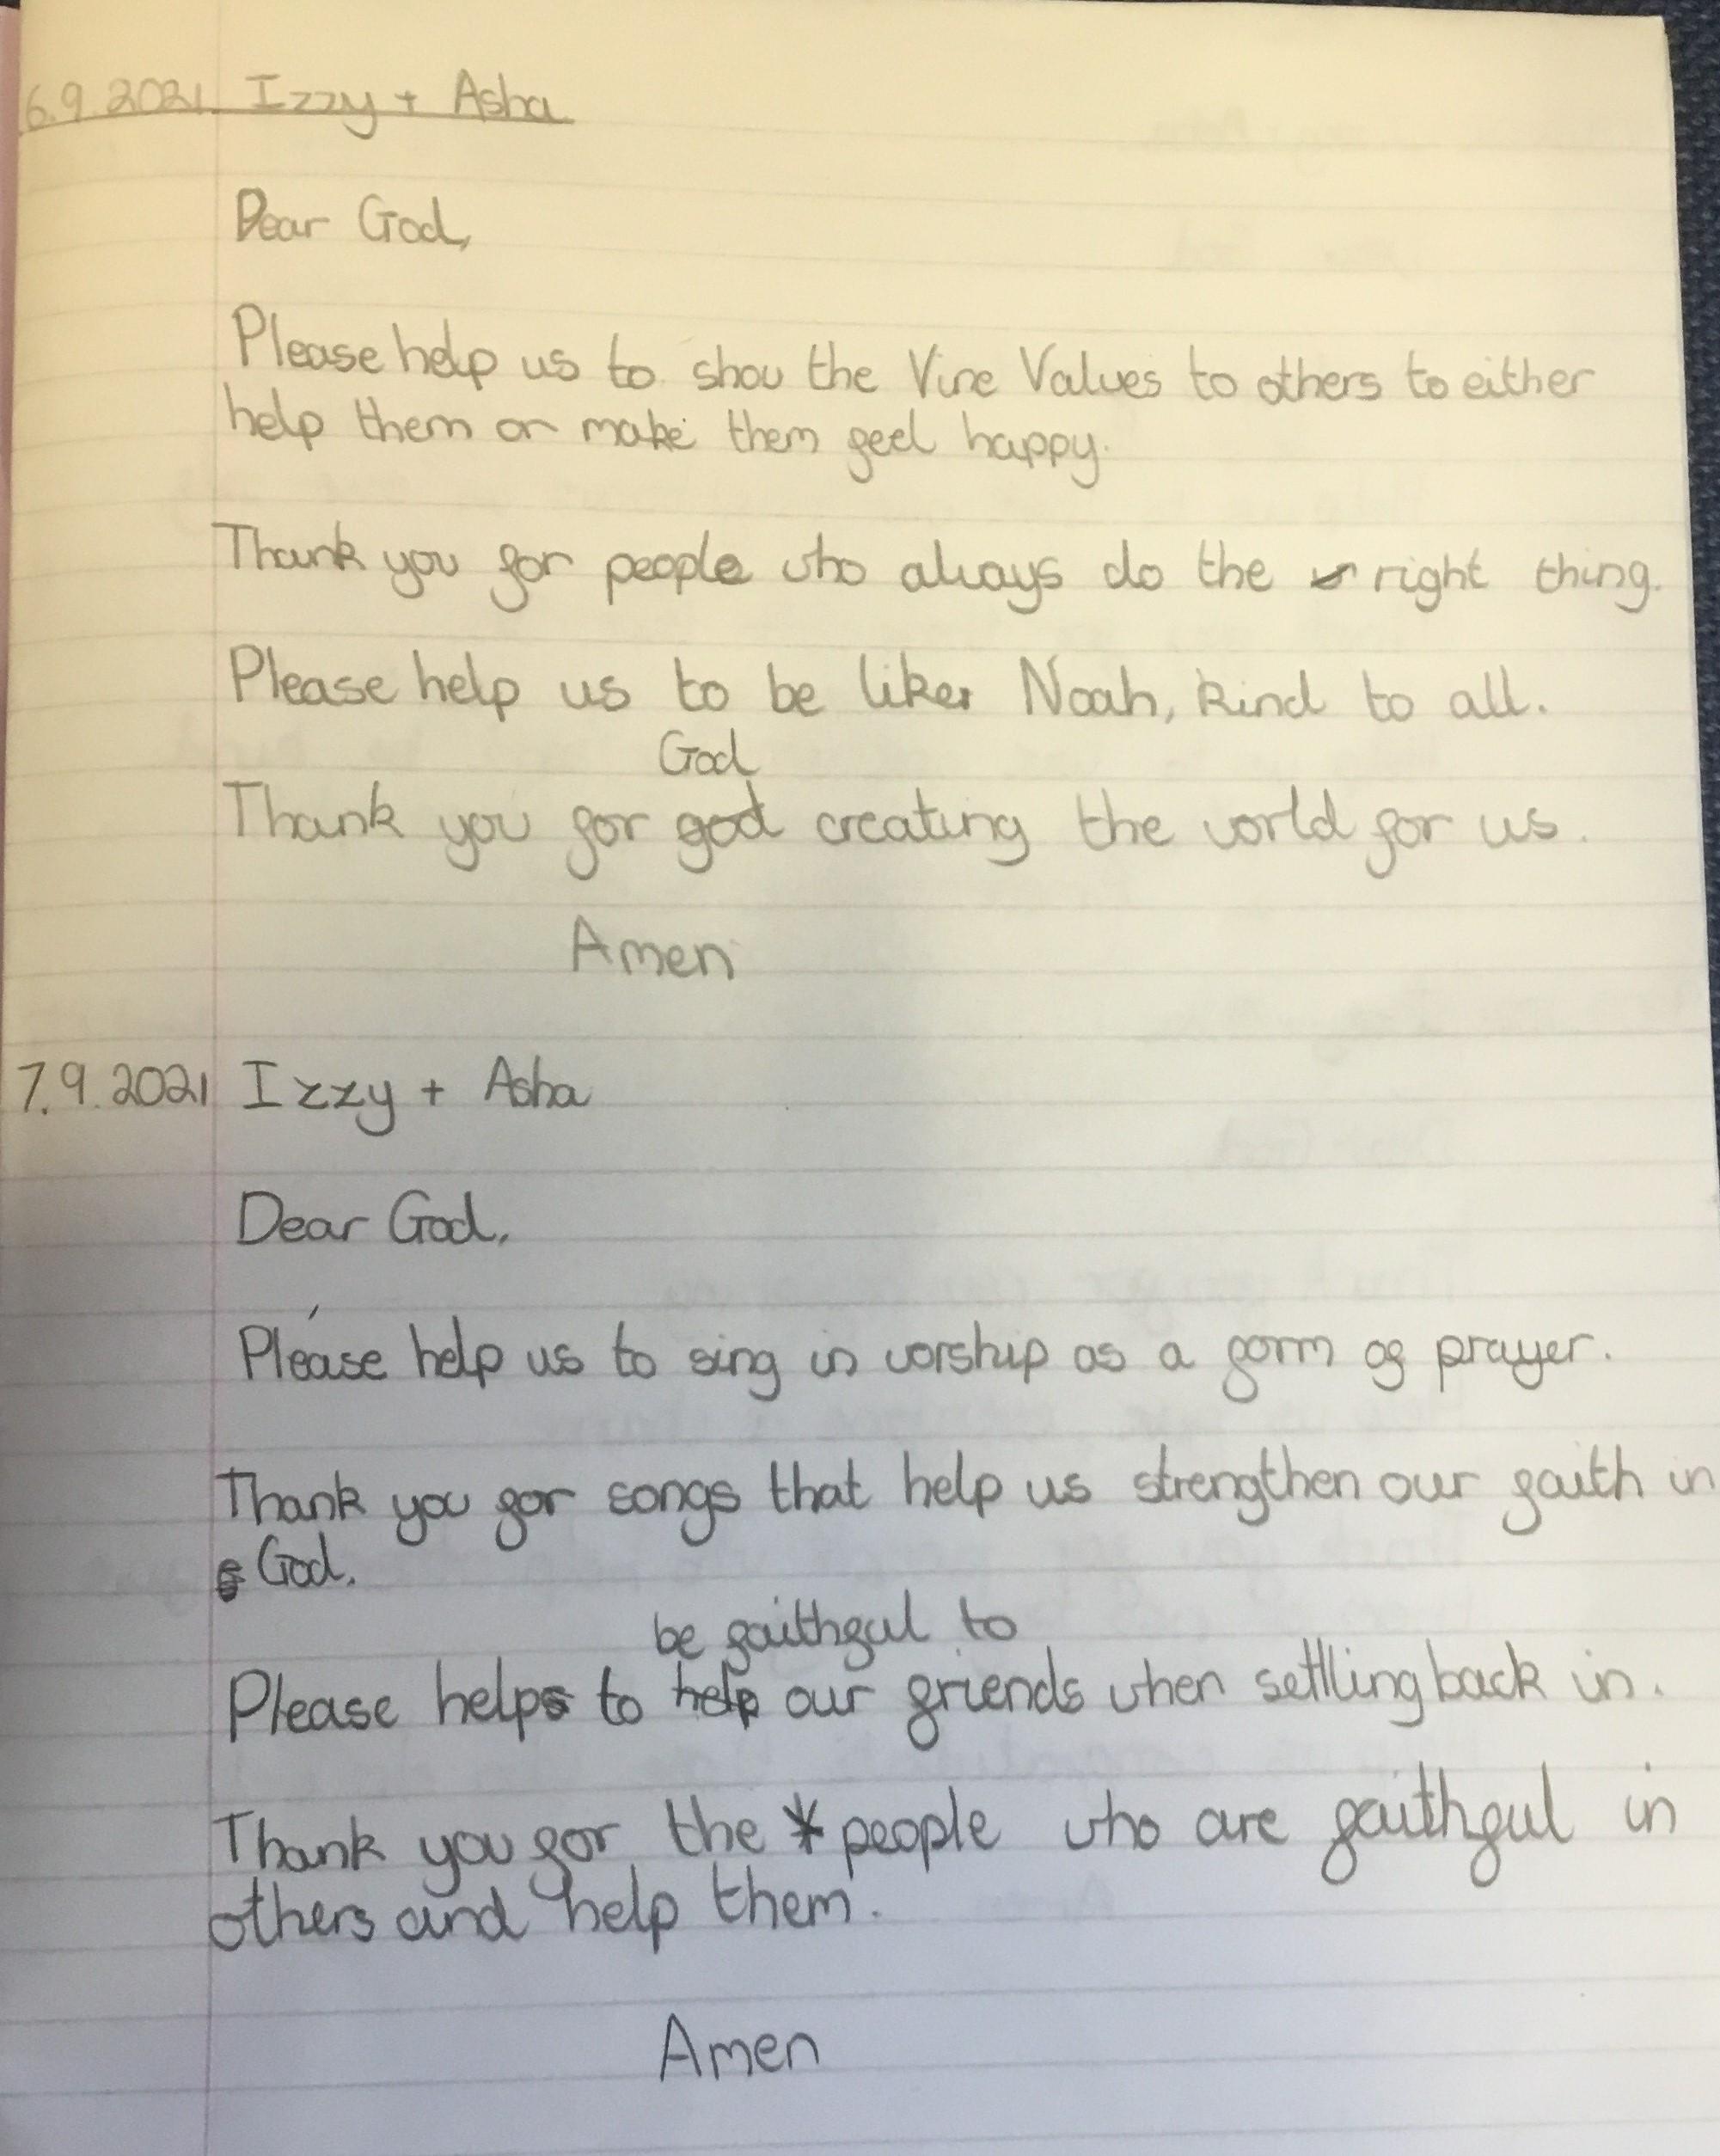 6.9.2021 Izzy + Asha
Dear God,
Please help us to show the Vine Values to others to either
help them or make them feel happy.
Thank you for people who always do the right thing.
Please help us to be like Noah, kind to all.
God
Thank you for god creating the world for us.
Amen
7.9.2021 Izzy + Asha
Dear God,
Please help us to sing in worship as a form of prayer.
Thank you for songs that help us strengthen our faith in
God.
be faithful to
Please help to help our friends when settling back in.
Thank you for the people who are faithful in
others and help them.
Amen